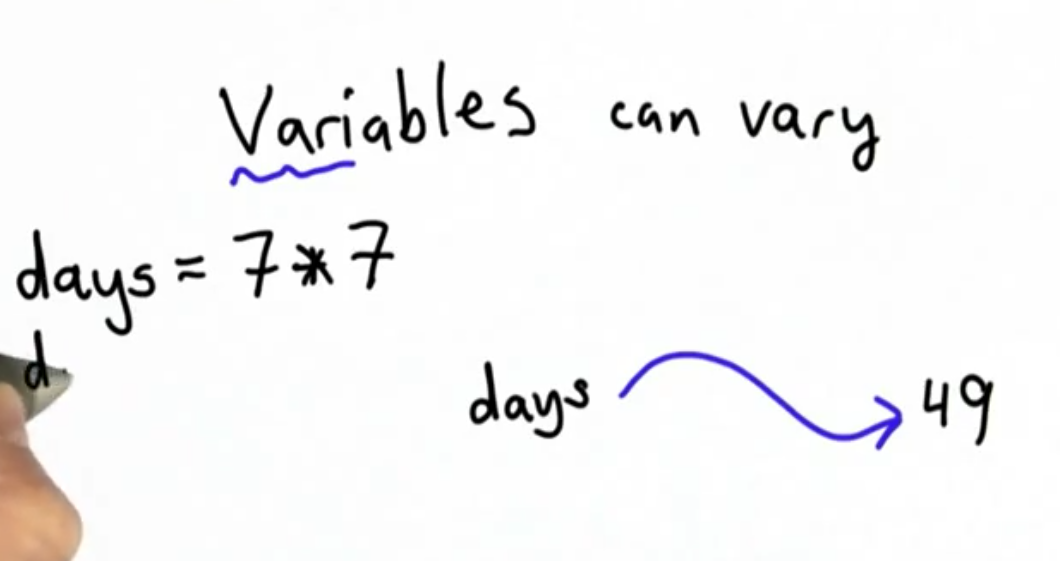 Variables can vary
days = 7 * 7
d
days 49